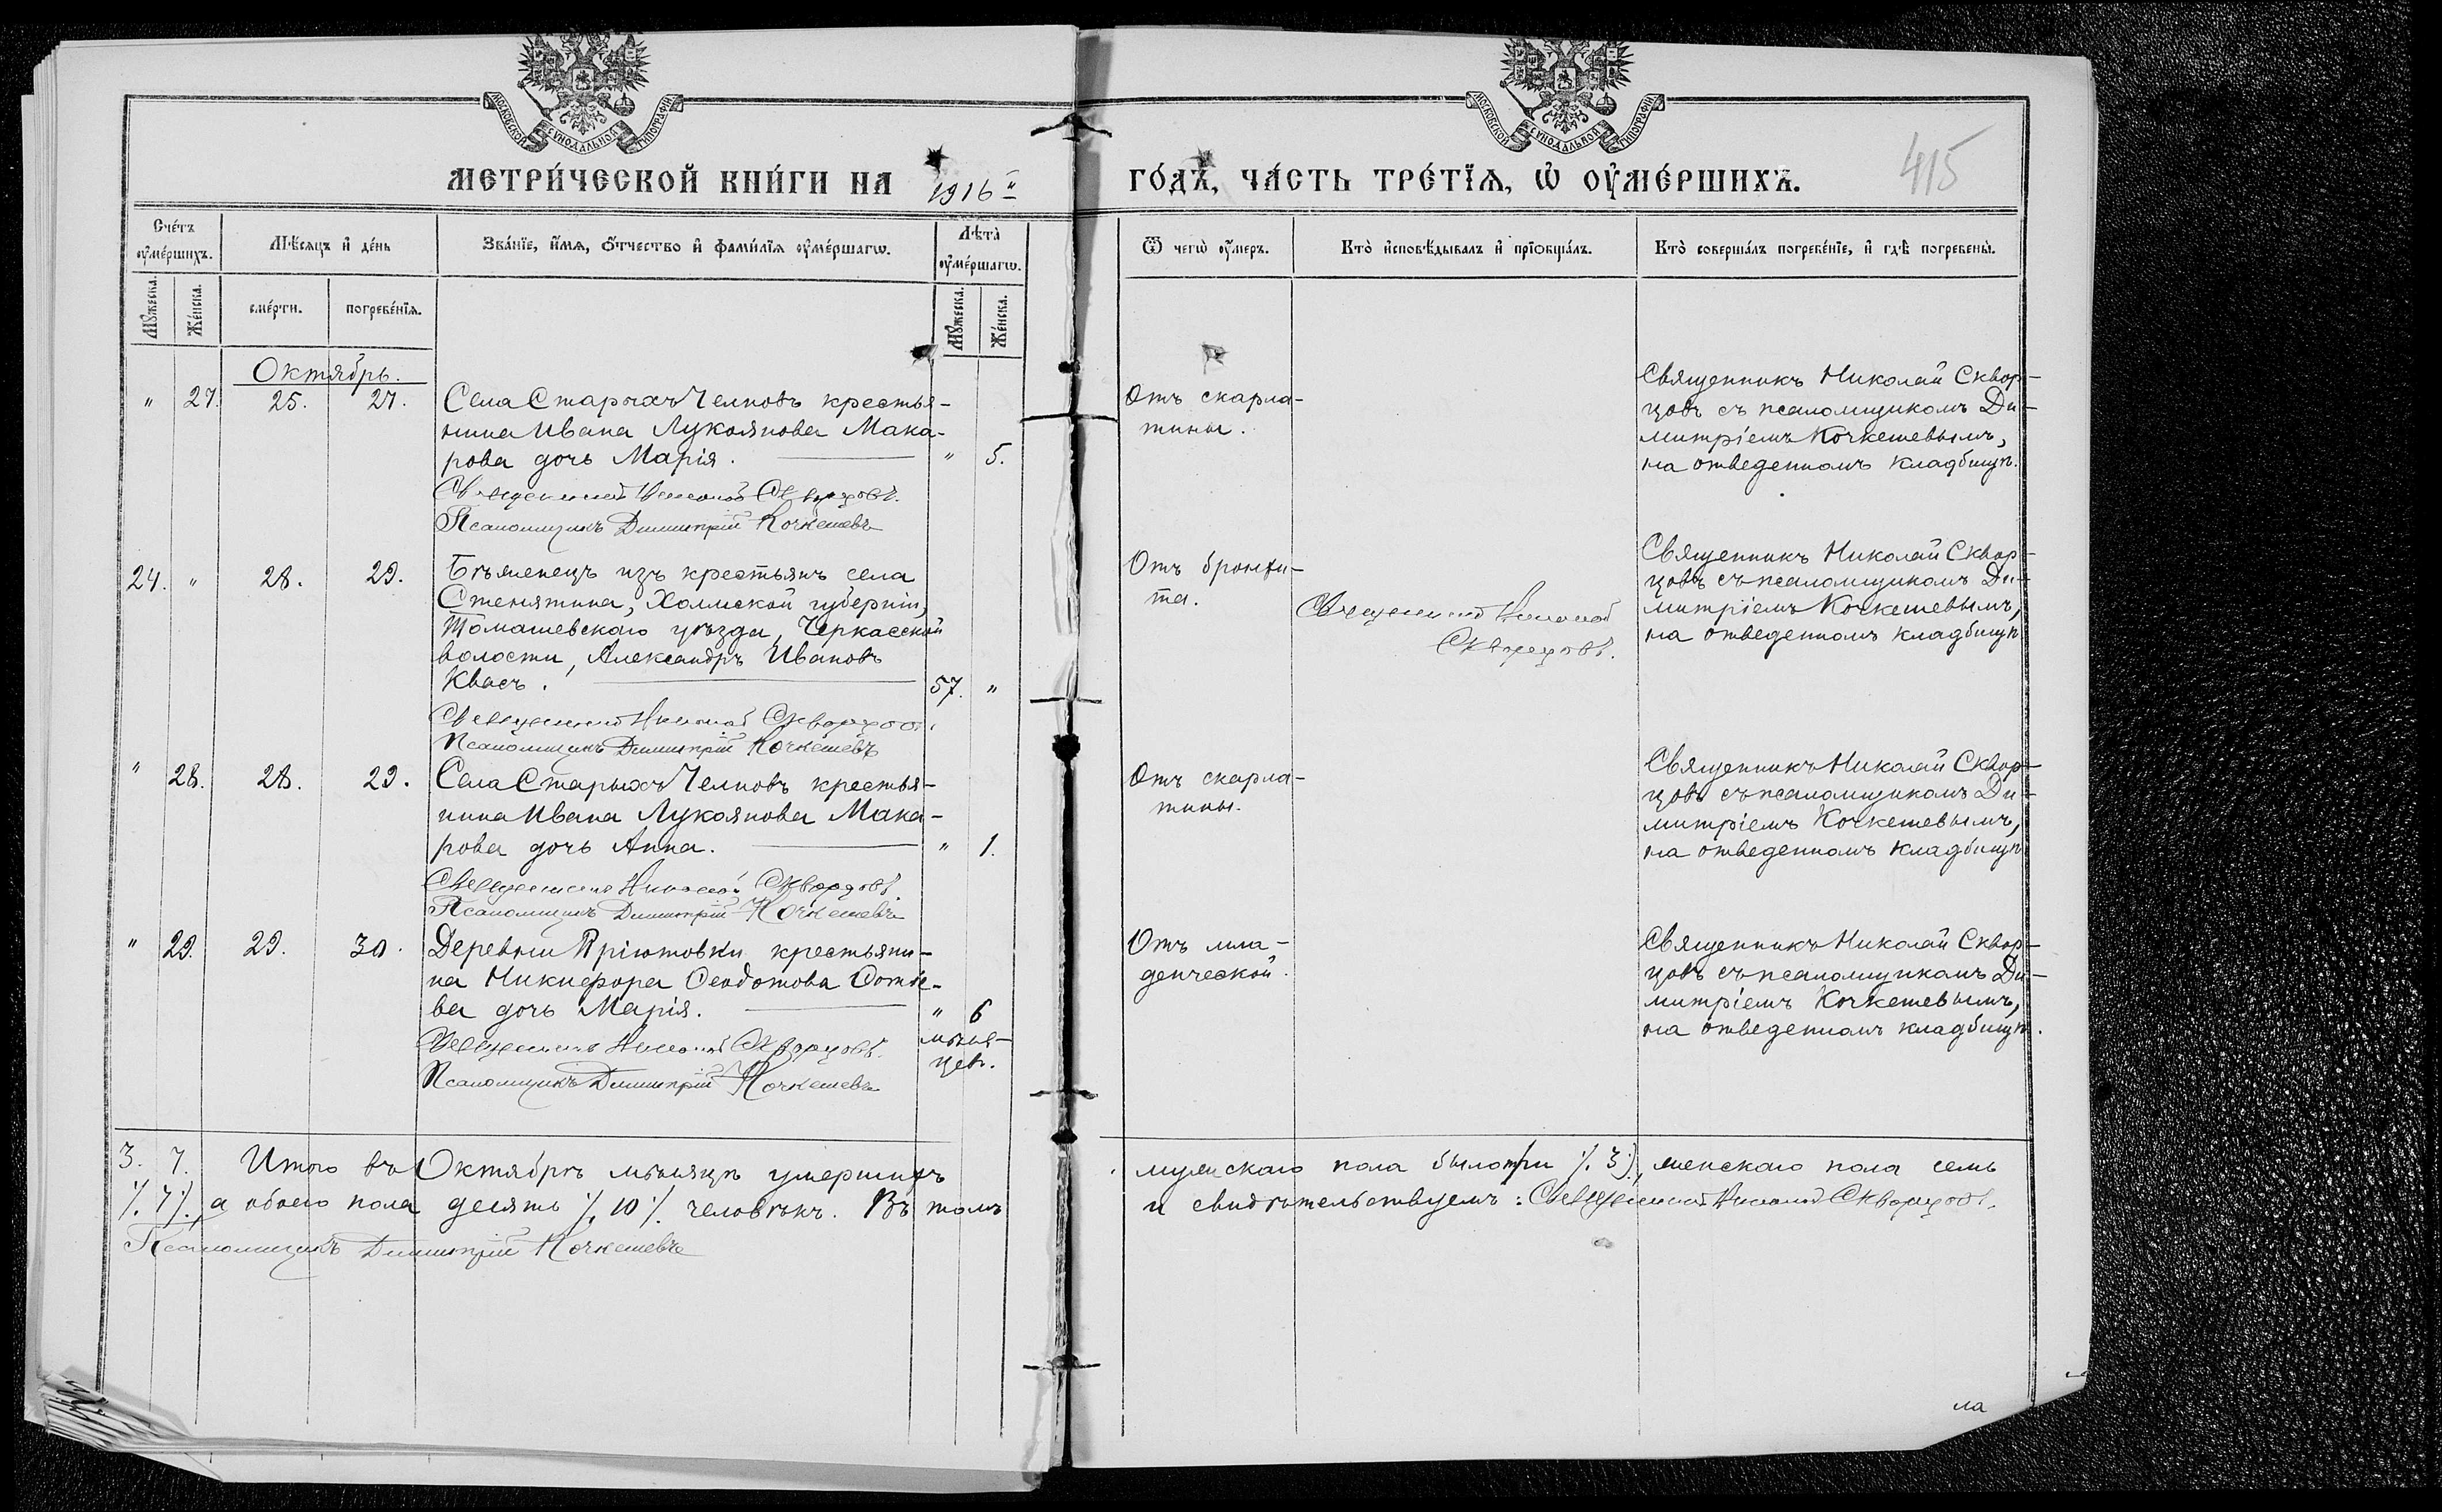 МОСКОВСКОЙ СѴНОДАЛЬНОЙ ТИПОГРАФІИ
МОСКОВСКОЙ СѴНОДАЛЬНОЙ ТИПОГРАФІИ
415
МЕТРИ́ЧЕСКОЙ КНИ́ГИ НА 1916 й ГО́ДЪ, ЧА́СТЬ ТРЕ́ТЇѦ, Ѡ҆ ОУ҆МЕ́РШИХЪ.
Сче́тъ оу҆ме́ршихъ.
Мѣ́сяцъ и҆ де́нь
Зва́нїе, и҆́мѧ, ѻ҆́тчество и҆ фами́лїѧ оу҆ме́ршагѡ.
Лѣ́та оу҆ме́ршагѡ.
Ѿ чегѡ̀ оу҆́меръ.
Кто̀ и҆сповѣ́дывалъ и҆ прїѡбща́лъ.
Кто̀ соверша́лъ погребе́нїе, и҆ гдѣ̀ погребены̀.
Мꙋ́жеска.
Же́нска.
сме́рти.
погребе́нїѧ.
Мꙋ́жеска.
Же́нска.
Октябрь.
" 27. 25. 27.
Села Старыхъ Челновъ крестья-
нина Ивана Лукоянова Мака-
рова дочь Марія. " 5.
Священникъ Николай Скворцовъ.
Псаломщикъ Димитрій Кочкешевъ
Отъ скарла-
тины.
Священникъ Николай Сквор-
цовъ съ псаломщикомъ Ди-
митріемъ Кочкешевымъ,
на отведенномъ кладбищѣ.
24. " 28. 29.
Бѣженецъ изъ крестьянъ села
Стенятина, Холмской губерніи,
Томашевскаго уѣзда, Черкасской
волости, Александръ Ивановъ
Квасъ. 57. "
Священникъ Николай Скворцовъ.
Псаломщикъ Димитрій Кочкешевъ
Отъ бронхи-
та.
Священникъ Николай
Скворцовъ.
Священникъ Николай Сквор-
цовъ съ псаломщикомъ Ди-
митріемъ Кочкешевымъ,
на отведенномъ кладбищѣ
" 28. 28. 29.
Села Старыхъ Челновъ крестья-
нина Ивана Лукоянова Мака-
рова дочь Анна. " 1.
Священникъ Николай Скворцовъ.
Псаломщикъ Димитрій Кочкешевъ
Отъ скарла-
тины.
Священникъ Николай Сквор-
цовъ съ псаломщикомъ Ди-
митріемъ Кочкешевымъ,
на отведенномъ кладбищѣ
" 29. 29. 30.
Деревни Пріютовки крестьяни-
на Никифора Ѳеодотова
ва дочь Марія. " 6
мѣся-
цев.
Священникъ Николай Скворцовъ.
Псаломщикъ Димитрій Кочкешевъ
Отъ мла-
денческой.
Священникъ Николай Сквор-
цовъ съ псаломщикомъ Ди-
митріемъ Кочкешевымъ,
на отведенномъ кладбищѣ.
3. 7. Итого въ Октябрѣ мѣсяцѣ умершихъ мужскаго пола было три /. 3 /., женскаго пола семь
/. 7 /., а обоего пола десять /. 10 /. человѣкъ. Въ томъ и свидѣтельствуемъ: Священникъ Николай Скворцовъ.
Псаломщикъ Димитрій Кочкешевъ
ла